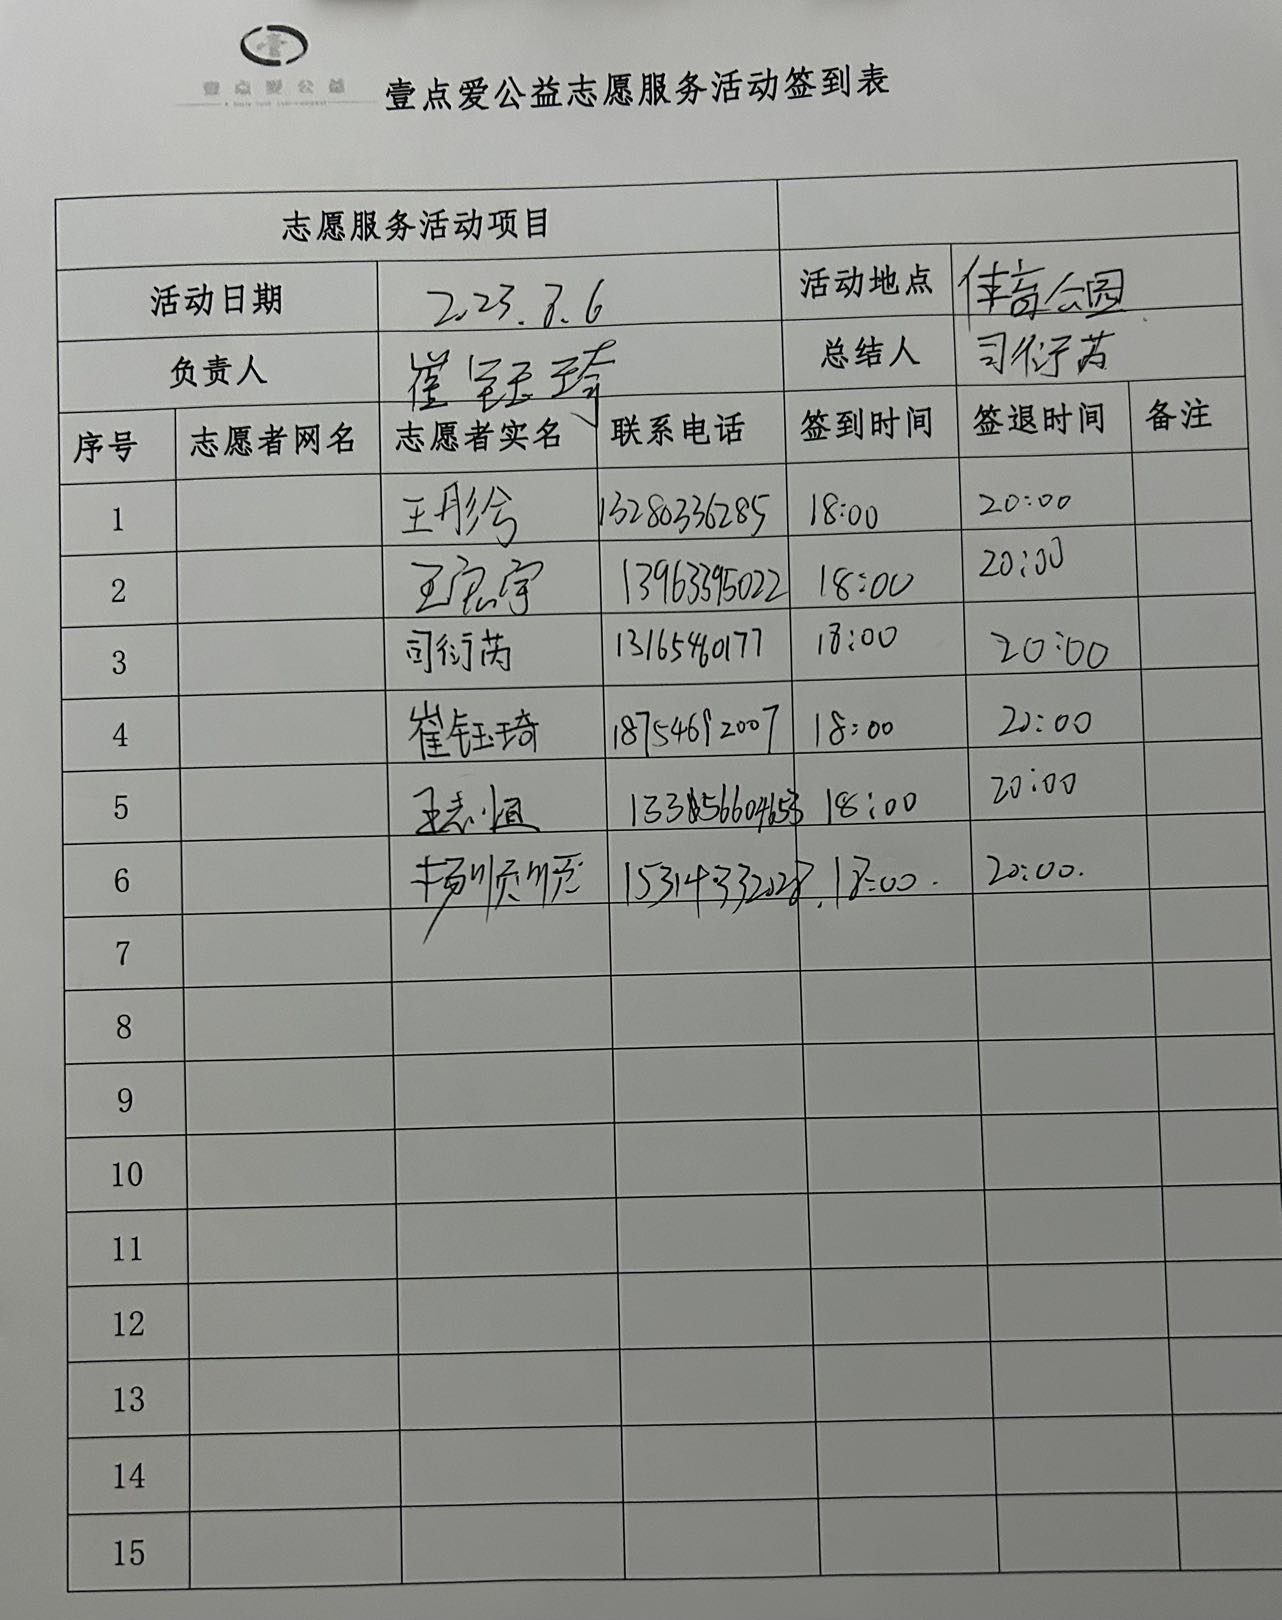 壹点爱公益
壹点爱公益志愿服务活动签到表
志愿服务活动项目
活动日期 2023.8.6 活动地点 体育公园
负责人 崔钰琦 总结人 司衍芮
序号 志愿者网名 志愿者实名 联系电话 签到时间 签退时间 备注
1 王彤兮 13280336285 18:00 20:00
2 王宏宇 13963395022 18:00 20:00
3 司衍芮 13165460177 18:00 20:00
4 崔钰琦 18754692007 18:00 20:00
5 王志恒 18:00 20:00
6 杨顺顺 15314332028 18:00 20:00
7
8
9
10
11
12
13
14
15